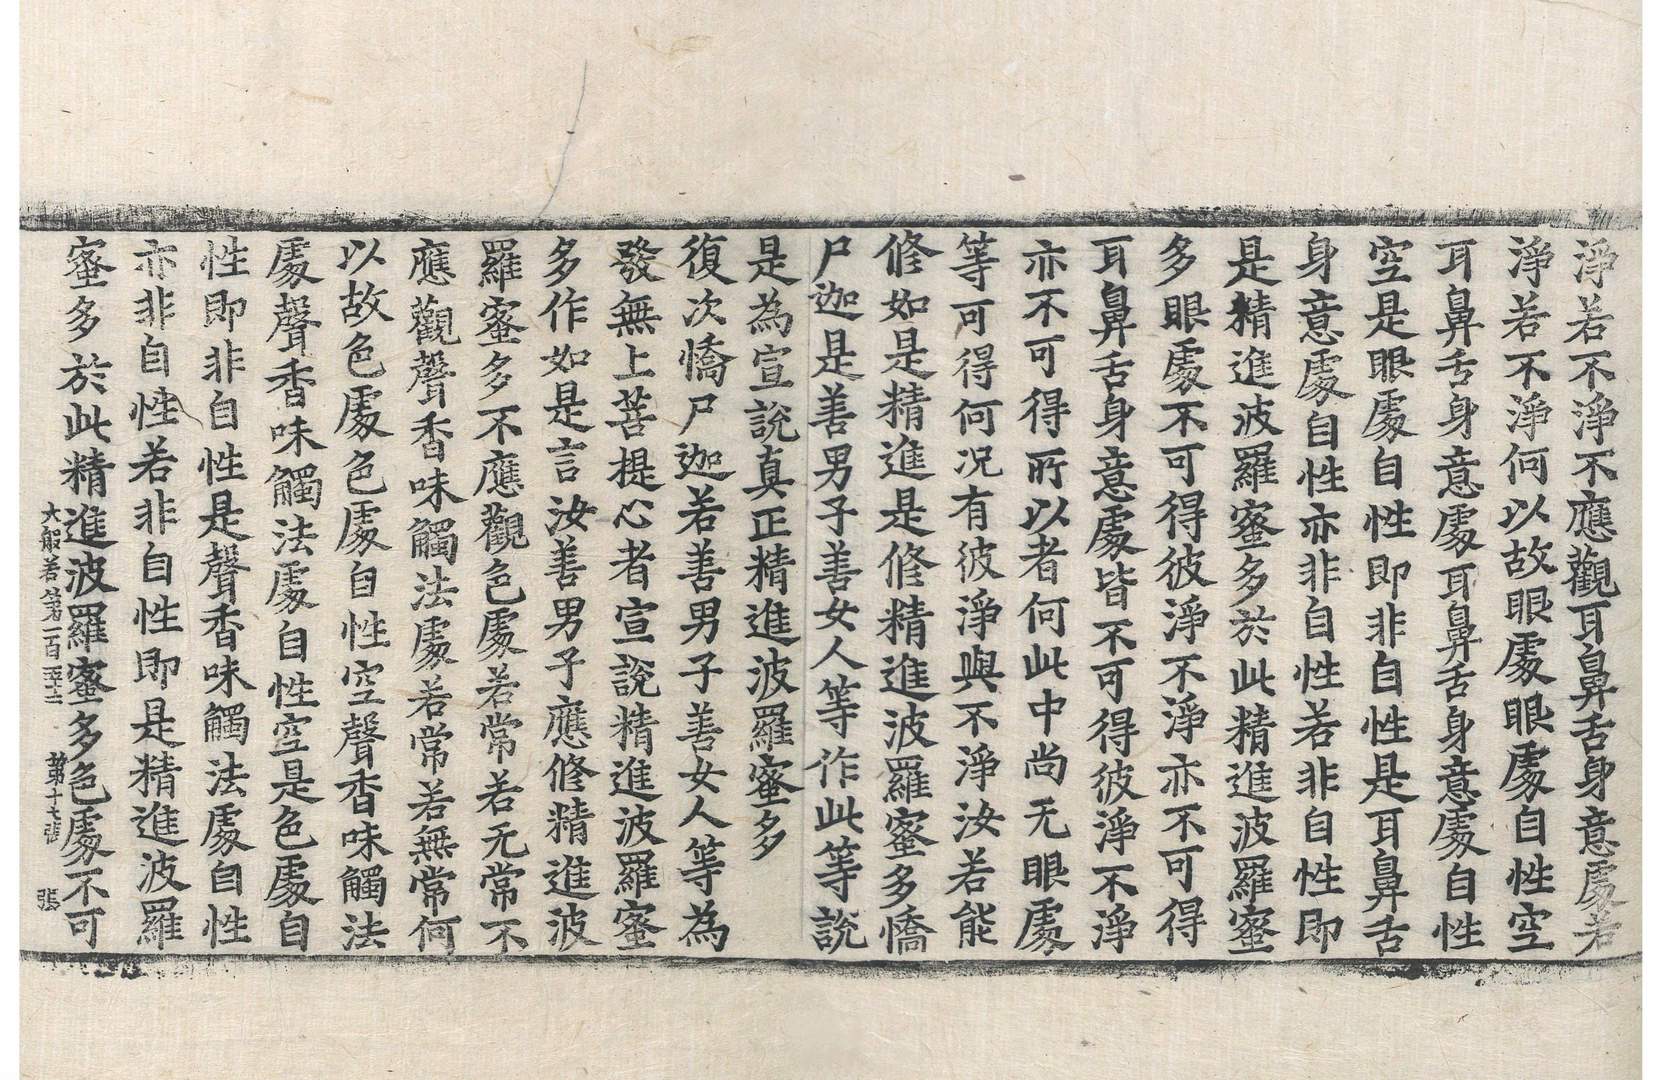 淨若不淨不應觀耳鼻舌身意處若
淨若不淨何以故眼處眼處自性空
耳鼻舌身意處耳鼻舌身意處自性
空是眼處自性即非自性是耳鼻舌
身意處自性亦非自性若非自性即
是精進波羅蜜多於此精進波羅蜜
多眼處不可得彼淨不淨亦不可得
耳鼻舌身意處皆不可得彼淨不淨
亦不可得所以者何此中尚无眼處
等可得何况有彼淨與不淨汝若能
修如是精進是修精進波羅蜜多憍
尸迦是善男子善女人等作此等說
是為宣說真正精進波羅蜜多
復次憍尸迦若善男子善女人等為
發無上菩提心者宣說精進波羅蜜
多作如是言汝善男子應修精進波
羅蜜多不應觀色處若常若无常不
應觀聲香味觸法處若常若無常何
以故色處色處自性空聲香味觸法
處聲香味觸法處自性空是色處自
性即非自性是聲香味觸法處自性
亦非自性若非自性即是精進波羅
蜜多於此精進波羅蜜多色處不可
大般若第一百五十二 第十七張